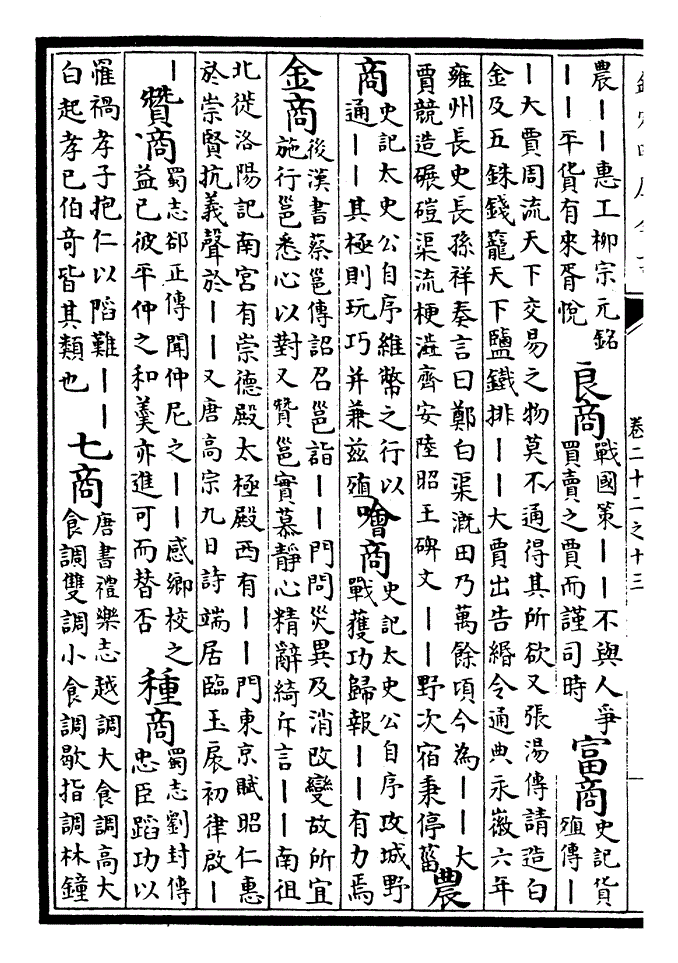 卷二十二之十三
農｜｜惠工柳宗元銘
｜｜平貨有來胥悅
良商
戰國策｜｜不與人爭
買賣之賈而謹司時
富商
史記貨
殖傳｜
｜大賈周流天下交易之物莫不通得其所欲又張湯傳請造白
金及五銖錢籠天下鹽鐵排｜｜大賈出告緡令通典永徽六年
雍州長史長孫祥奏言曰鄭白渠漑田乃萬餘頃今為｜｜大
賈競造碾磑渠流梗澁齊安陸昭王碑文｜｜野次宿秉停菑
農
商
史記太史公自序維幣之行以
通｜｜其極則玩巧并兼兹殖
噲商
史記太史公自序攻城野
戰獲功歸報｜｜有力焉
金商
後漢書蔡邕傳詔召邕詣｜｜門問災異及消改變故所宜
施行邕悉心以對又贊邕實慕靜心精辭綺斥言｜｜南徂
北徙洛陽記南宮有崇德殿太極殿西有｜｜門東京賦昭仁惠
於崇賢抗義聲於｜｜又唐高宗九日詩端居臨玉扆初律啟｜
｜
贊商
蜀志郤正傳聞仲尼之｜｜感卿校之
益已彼平仲之和羹亦進可而替否
種商
蜀志劉封傳
忠臣蹈功以
罹禍孝子抱仁以陷難｜｜
白起孝已伯奇皆其類也
七商
唐書禮樂志越調大食調高大
食調雙調小食調歇指調林鐘